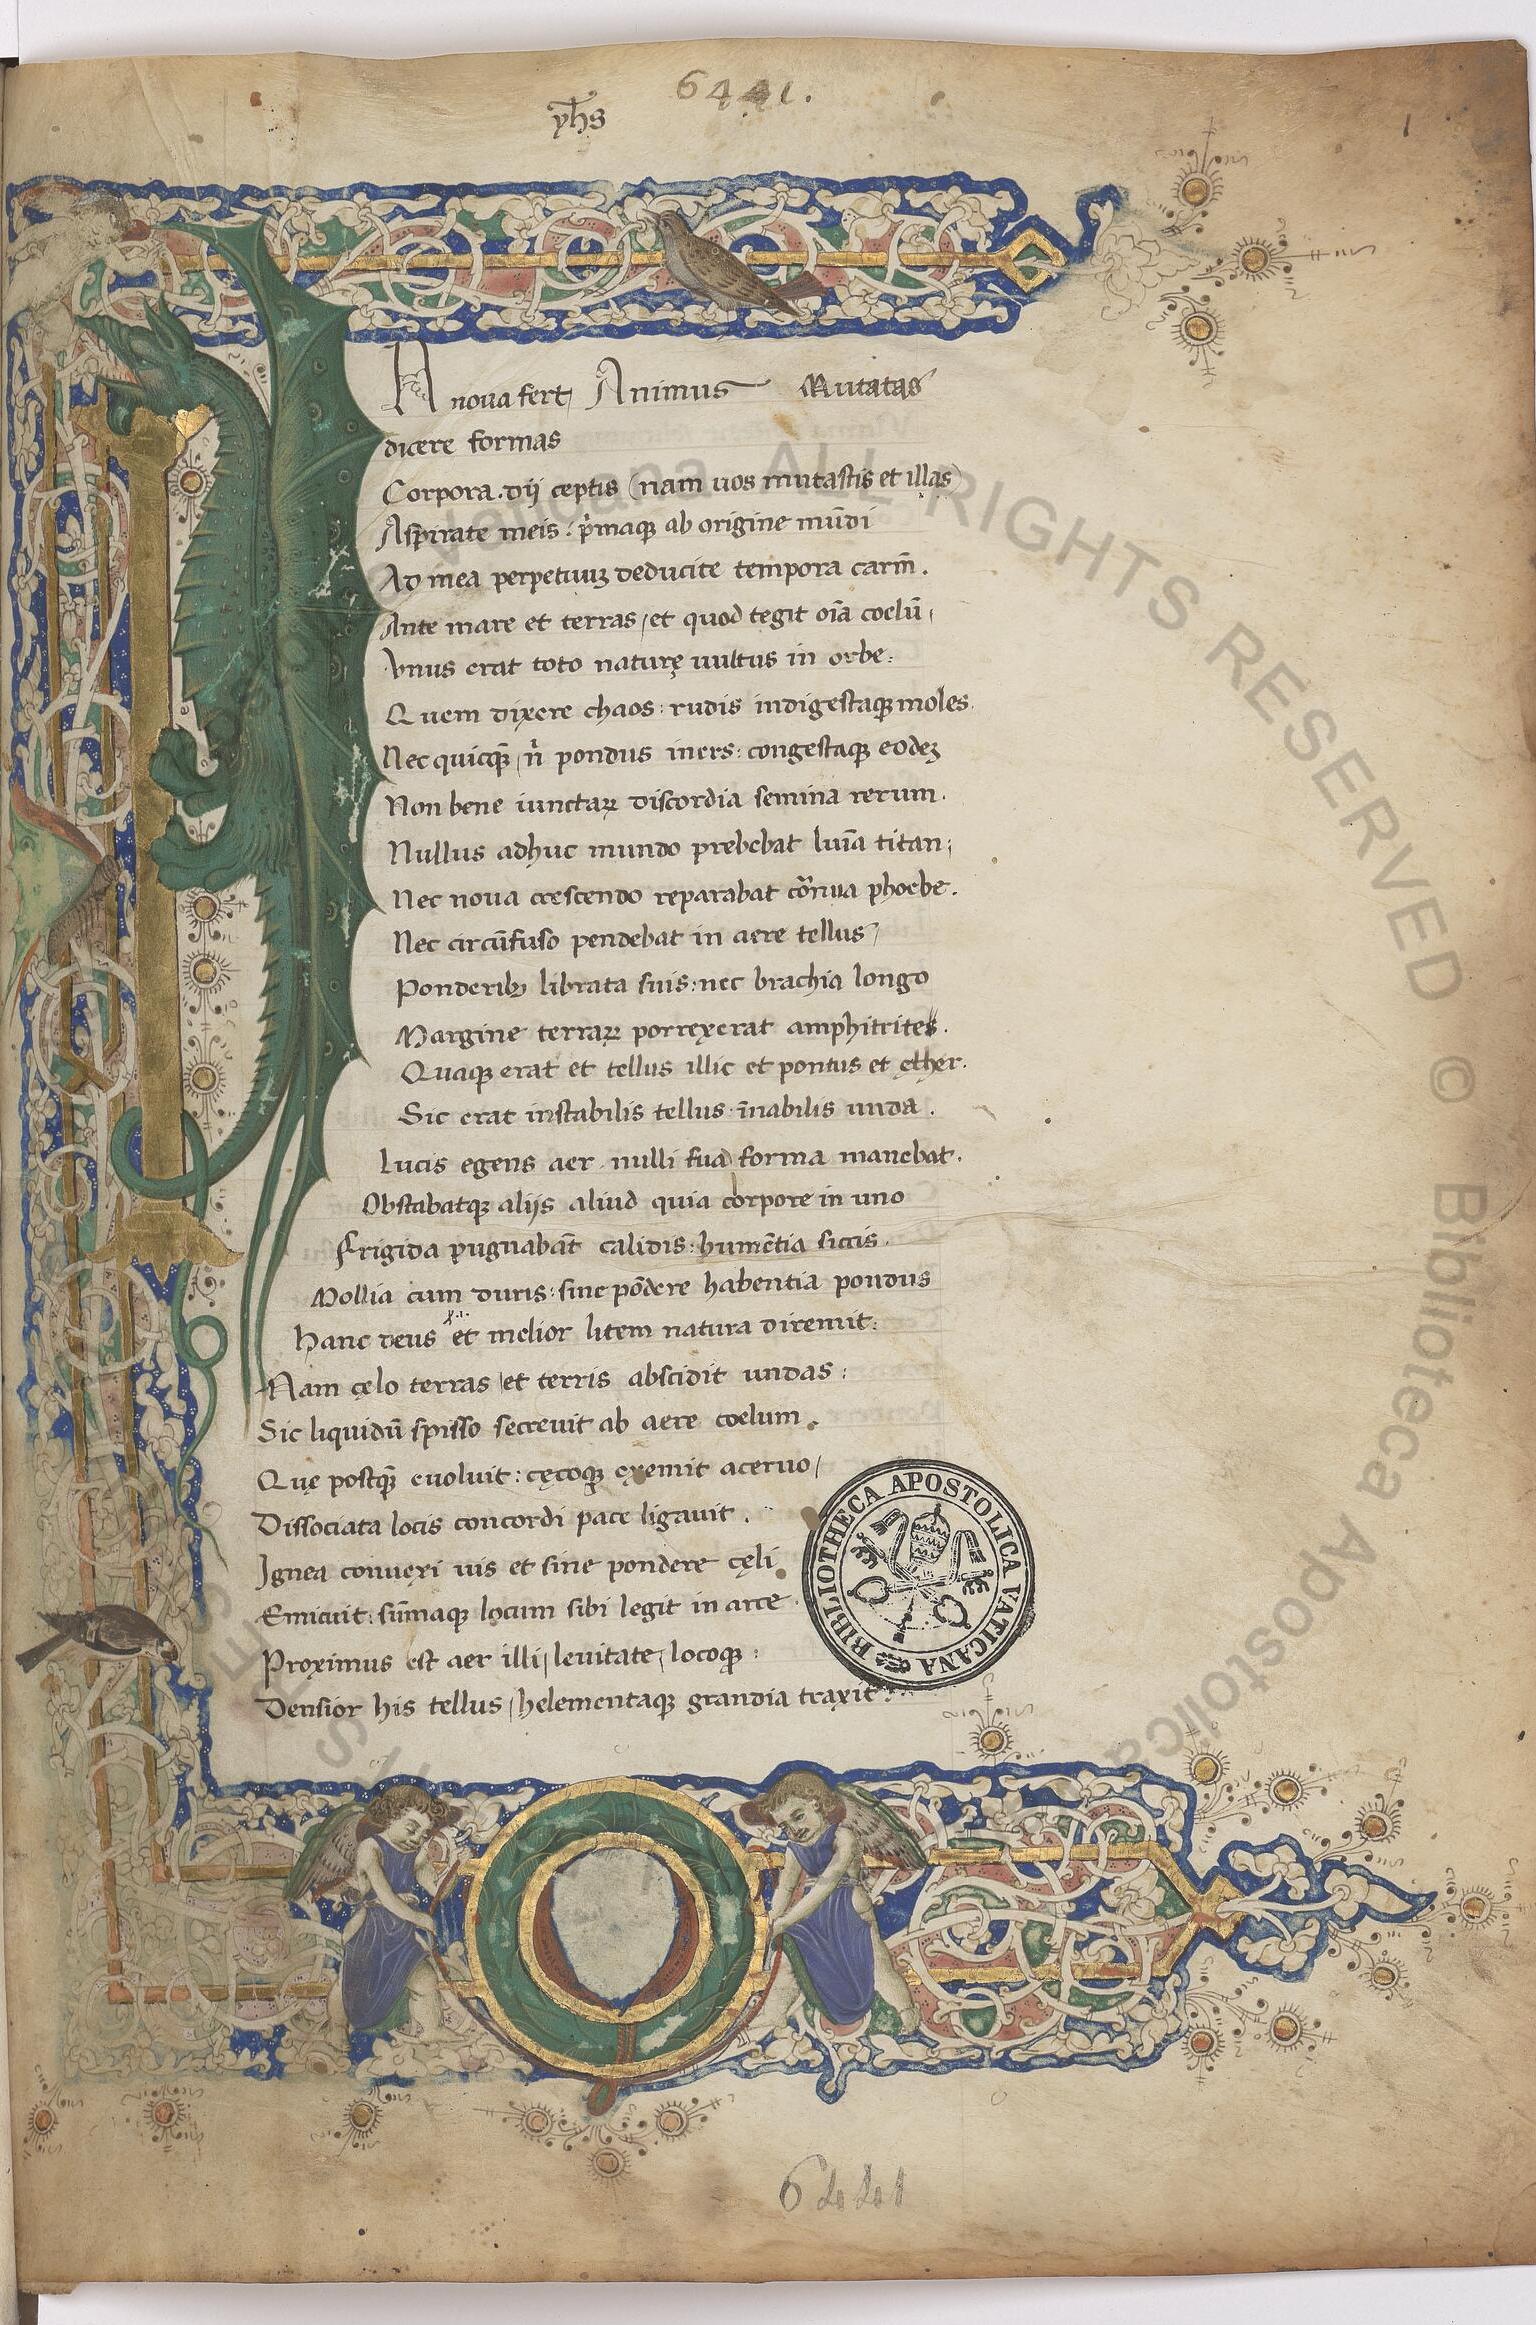 6441.
yhs
1
IN nova fert Animus Mutatas
dicere formas
Corpora. dij ceptis (nam uos mutastis et illas)
Aspirate meis: p̄maq; ab origine mūdi
Ad mea perpetuuꝫ deducite tempora carm̄.
Ante mare et terras, et quod tegit oīa coelū,
Vnus erat toto naturę uultus in orbe:
Quem dixere chaos: rudis indigestaq; moles.
Nec quicq̄ n̄ pondus iners: congestaq; eodeꝫ
Non bene iunctaꝝ discordia semina rerum.
Nullus adhuc mundo prebebat luīa titan;
Nec noua crescendo reparabat cōrnua phoebe.
Nec circūfuso pendebat in aere tellus
Ponderibꝫ librata suis: nec brachia longo
Margine terraꝝ porrexerat amphitrites.
Quaq; erat et tellus illic et pontus et ęther.
Sic erat instabilis tellus. īnabilis unda.
Lucis egens aer. nulli sua forma manebat.
Obstabatq; alijs aliud quia corpore in uno
Frigida pugnabāt calidis: humētia siccis.
Mollia cum duris: sine pōdere habentia pondus
Hanc deus et melior litem natura diremit:
Nam cęlo terras, et terris abscidit undas:
Sic liquidū spisso secreuit ab aere coelum.
Quę postq̄ euoluit: cęcoq; exemit aceruo,
Dissociata locis concordi pace ligauit.
Ignea conuexi uis et sine pondere cęli
Emicuit: sūmaq; locum sibi legit in arce.
Proximus est aer illi, leuitate, locoq;:
Densior his tellus, helementaq; grandia traxit.
BIBLIOTHECA APOSTOLICA VATICANA
6441
Vaticana ALL RIGHTS RESERVED © Biblioteca Apostolica